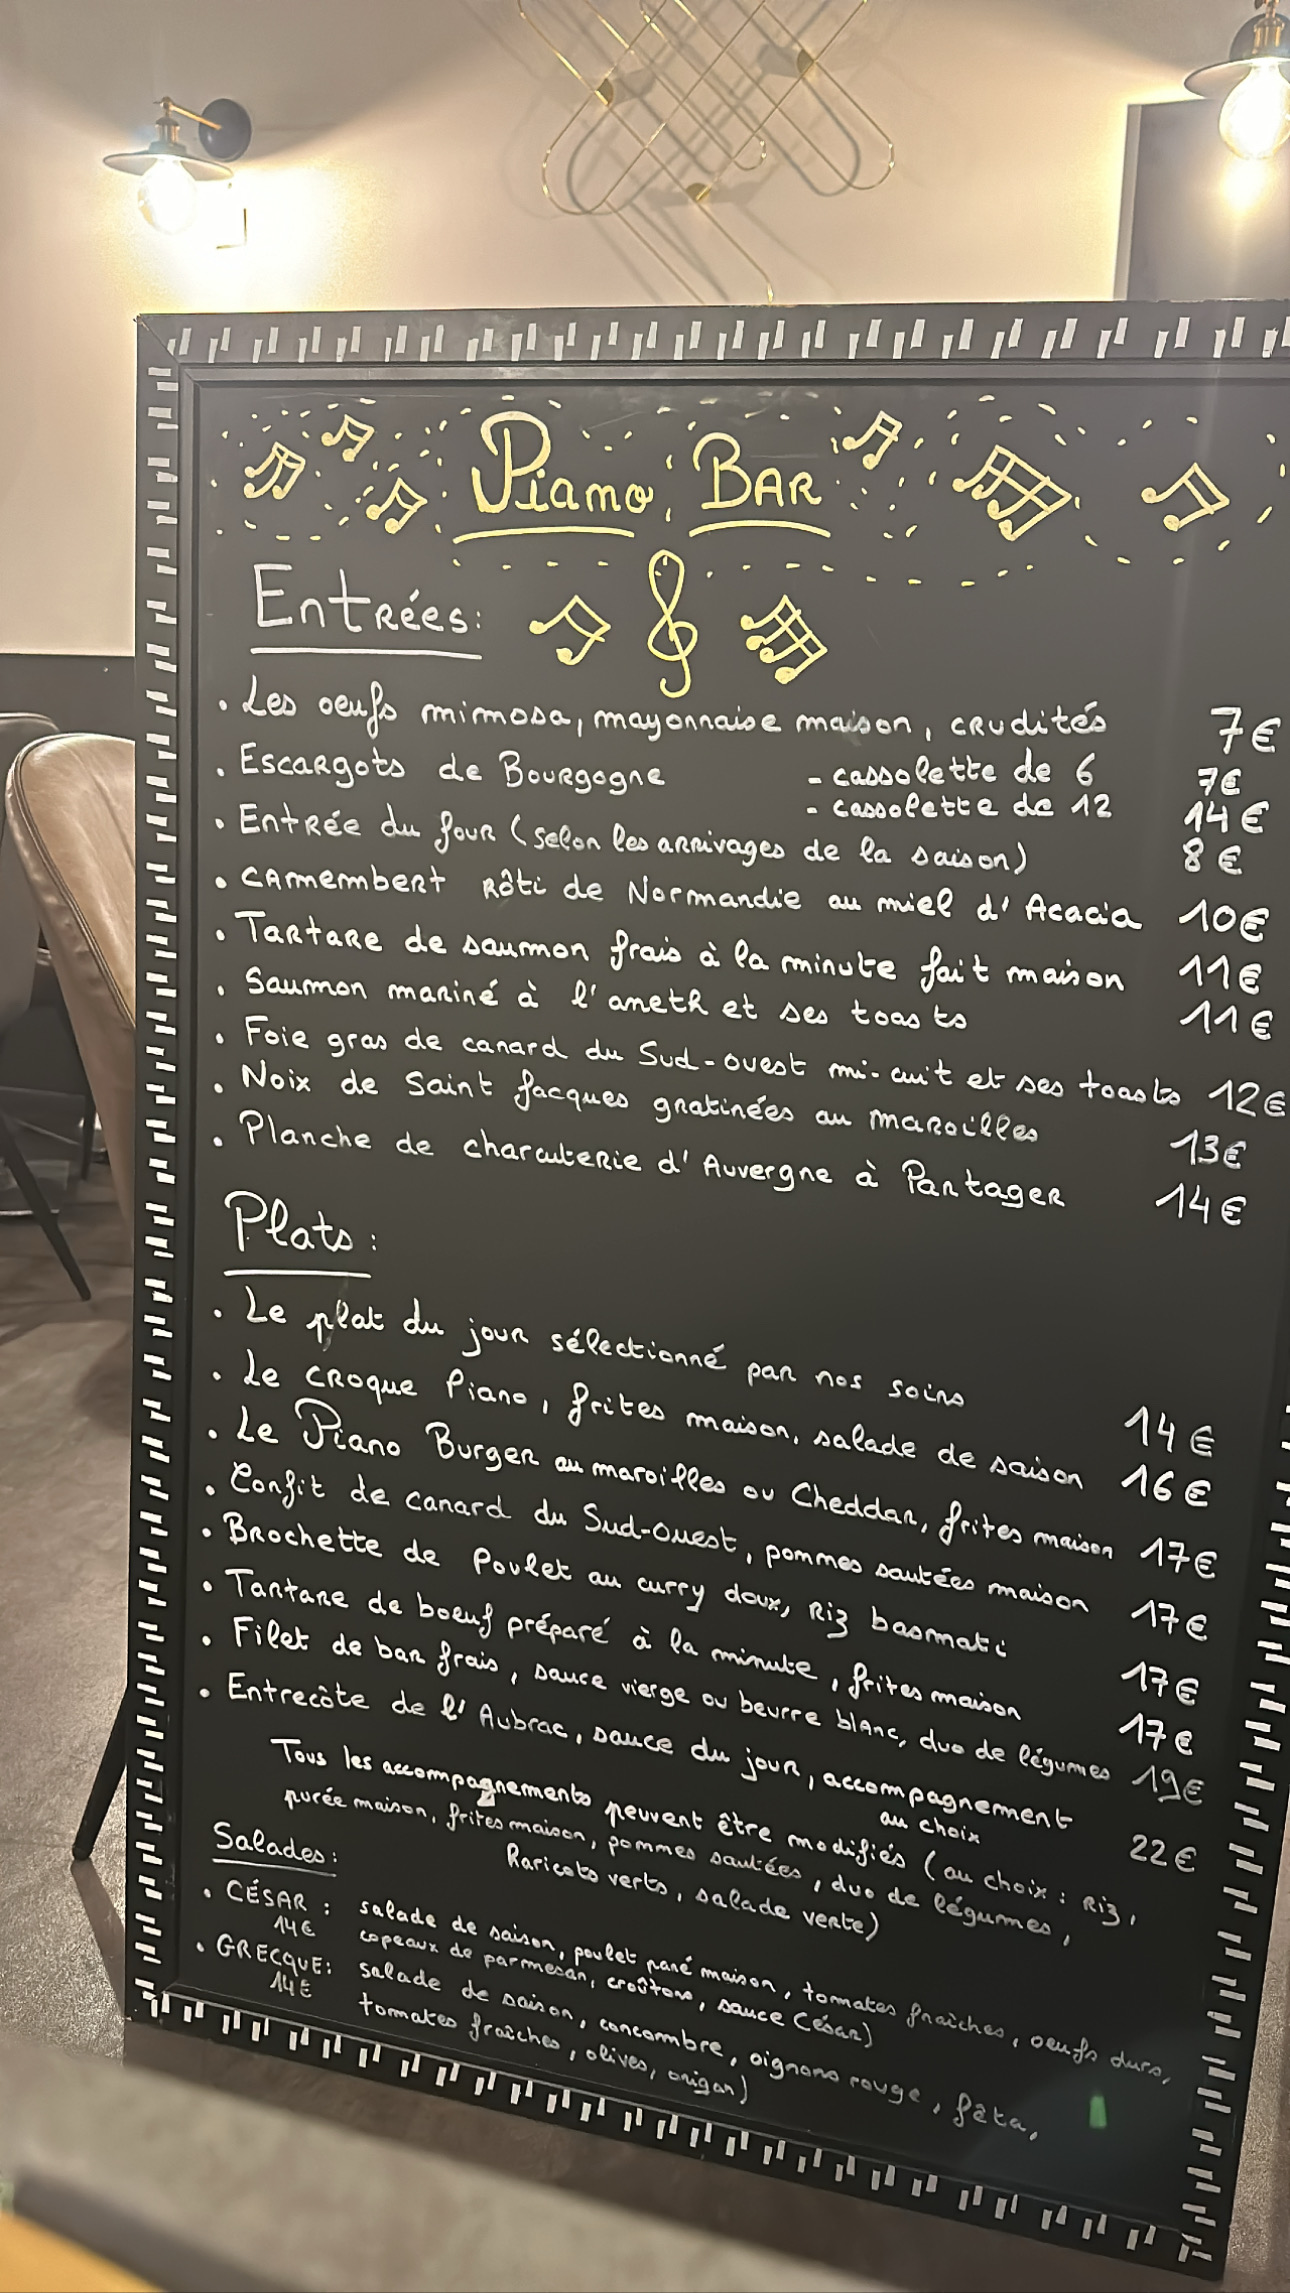 Piano Bar
Entrées:
. Les oeufs mimosa, mayonnaise maison, crudités 7€
. Escargots de Bourgogne - cassolette de 6 7€
- cassolette de 12 14€
. Entrée du jour (selon les arrivages de la saison) 8€
. Camembert rôti de Normandie au miel d'Acacia 10€
. Tartare de saumon frais à la minute fait maison 11€
. Saumon mariné à l'aneth et ses toasts 11€
. Foie gras de canard du Sud-ouest mi-cuit et ses toasts 12€
. Noix de Saint Jacques gratinées au maroilles 13€
. Planche de charcuterie d'Auvergne à Partager 14€
Plats:
. Le plat du jour sélectionné par nos soins 14€
. Le croque Piano, frites maison, salade de saison 16€
. Le Piano Burger au maroilles ou Cheddar, frites maison 17€
. Confit de canard du Sud-Ouest, pommes sautées maison 17€
. Brochette de Poulet au curry doux, Riz basmati 17€
. Tartare de boeuf préparé à la minute, frites maison 17€
. Filet de bar frais, sauce vierge ou beurre blanc, duo de légumes 19€
. Entrecôte de l'Aubrac, sauce du jour, accompagnement
au choix 22€
Tous les accompagnements peuvent être modifiés (au choix: Riz,
purée maison, frites maison, pommes sautées, duo de légumes,
Haricots verts, salade verte)
Salades:
. CÉSAR: salade de saison, poulet pané maison, tomates fraîches, oeufs durs,
14€ copeaux de parmesan, croûtons, sauce César)
. GRECQUE: salade de saison, concombre, oignons rouge, fêta,
14€ tomates fraîches, olives, origan)